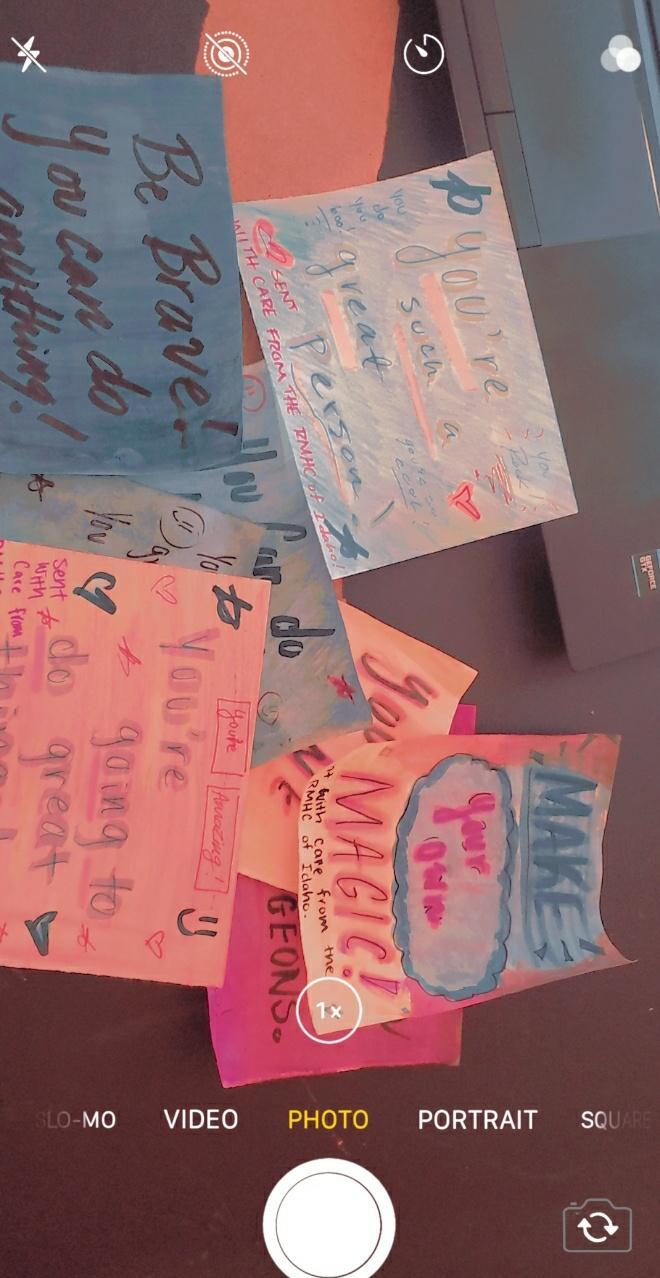 Be Brave!
You can do
anything!
you're
such a
great
person.
You
do
you
boo!
SENT
WITH CARE FROM THE RMHC of Idaho!
You can do
You
you're
Amazing!
You're
going to
do great
things!
Sent
with
Care from
You
MAKE
your
own
MAGIC!
with care from the
RMHC of Idaho.
GEONS.
GEFORCE
GTX
1x
SLO-MO
VIDEO
PHOTO
PORTRAIT
SQUARE